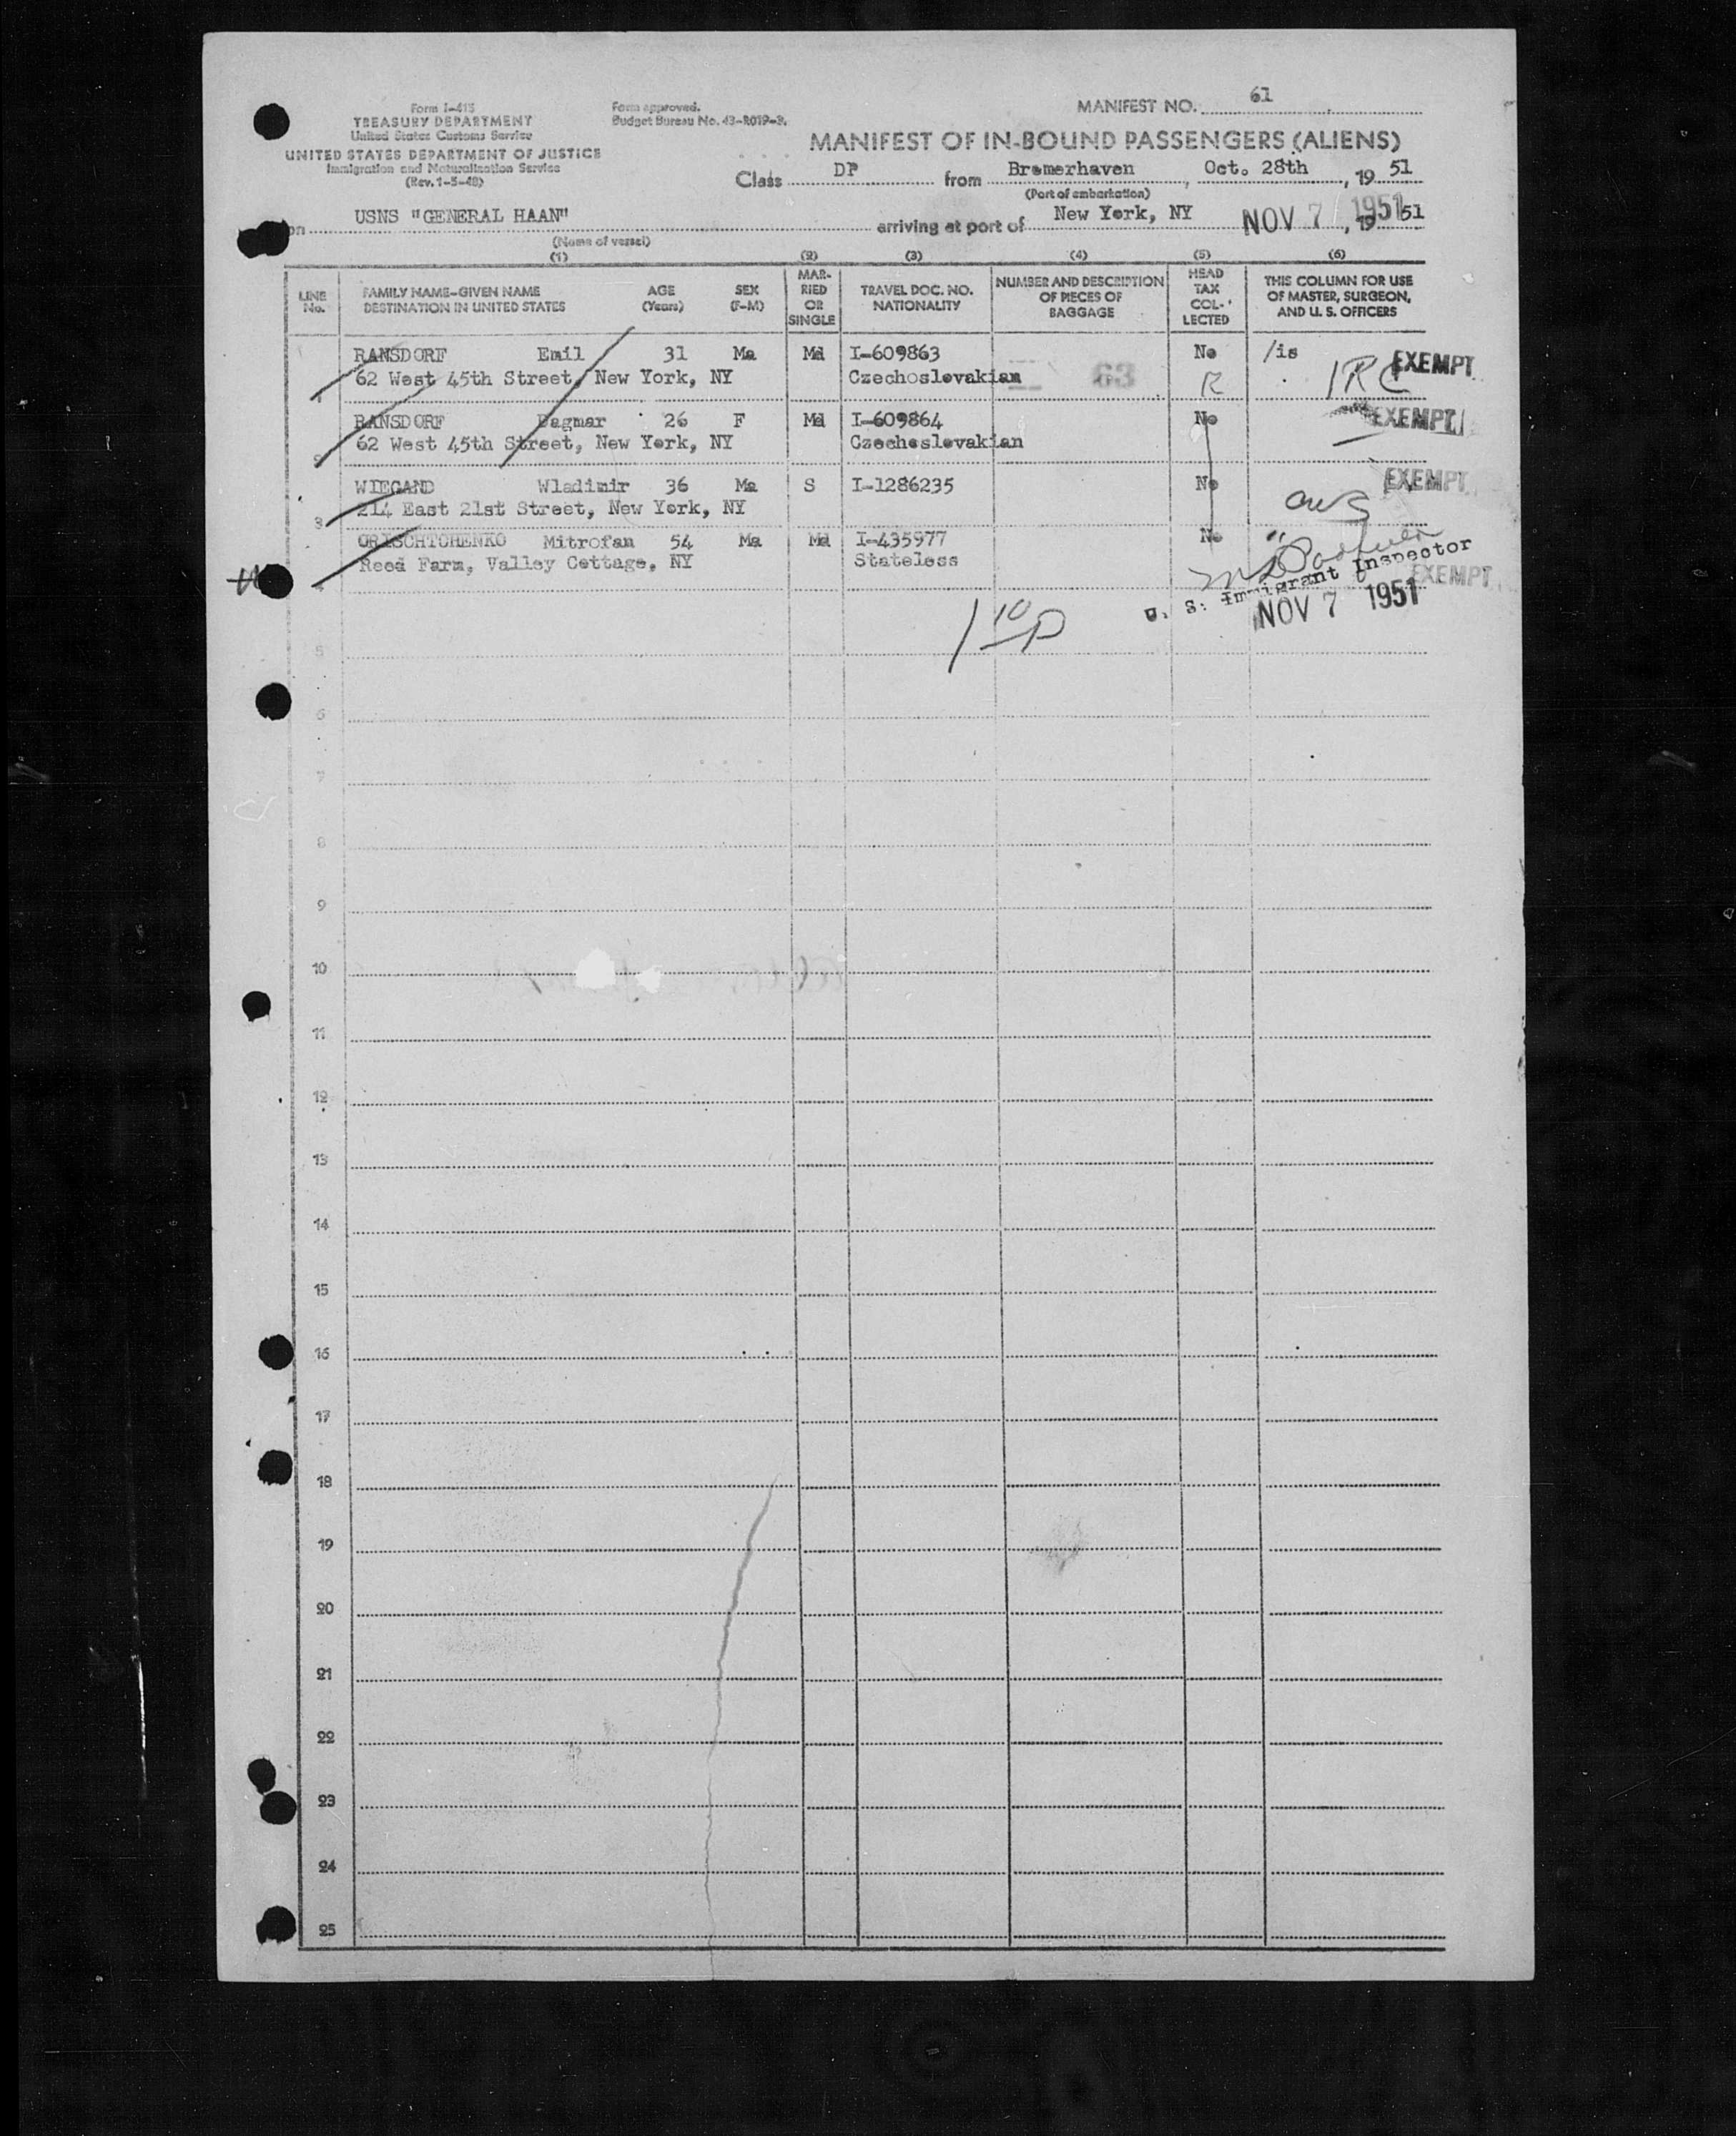 Form I-415
TREASURY DEPARTMENT
United States Customs Service
UNITED STATES DEPARTMENT OF JUSTICE
Immigration and Naturalization Service
(Rev. 1-5-48)
Form approved.
Budget Bureau No. 43-R019-3.
MANIFEST NO. 61
MANIFEST OF IN-BOUND PASSENGERS (ALIENS)
Class DP from Bremerhaven, Oct. 28th, 19 51
(Port of embarkation)
on USNS "GENERAL HAAN" arriving at port of New York, NY NOV 7 1951, 19 51
(Name of vessel)
(1) (2) (3) (4) (5) (6)
LINE No. FAMILY NAME—GIVEN NAME DESTINATION IN UNITED STATES AGE (Years) SEX (F-M) MAR-RIED OR SINGLE TRAVEL DOC. NO. NATIONALITY NUMBER AND DESCRIPTION OF PIECES OF BAGGAGE HEAD TAX COL-LECTED THIS COLUMN FOR USE OF MASTER, SURGEON, AND U. S. OFFICERS
RANSDORF Emil 31 Ma Md I-609863 No /is EXEMPT
1 62 West 45th Street, New York, NY Czechoslovakian 63 R IRC
RANSDORF Dagmar 26 F Md I-609864 No EXEMPT
2 62 West 45th Street, New York, NY Czechoslovakian
WIEGAND Wladimir 36 Ma S I-1286235 No EXEMPT
3 214 East 21st Street, New York, NY
ORISCHTCHENKO Mitrofan 54 Ma Md I-435977 No
4 Reed Farm, Valley Cottage, NY Stateless EXEMPT
U. S. Immigrant Inspector
NOV 7 1951
5
6
7
8
9
10
11
12
13
14
15
16
17
18
19
20
21
22
23
24
25